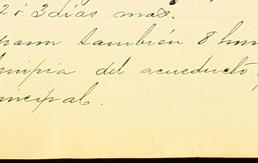 2 ó 3 dias mas.
también 8 hom
limpia del acueducto
ncipal.